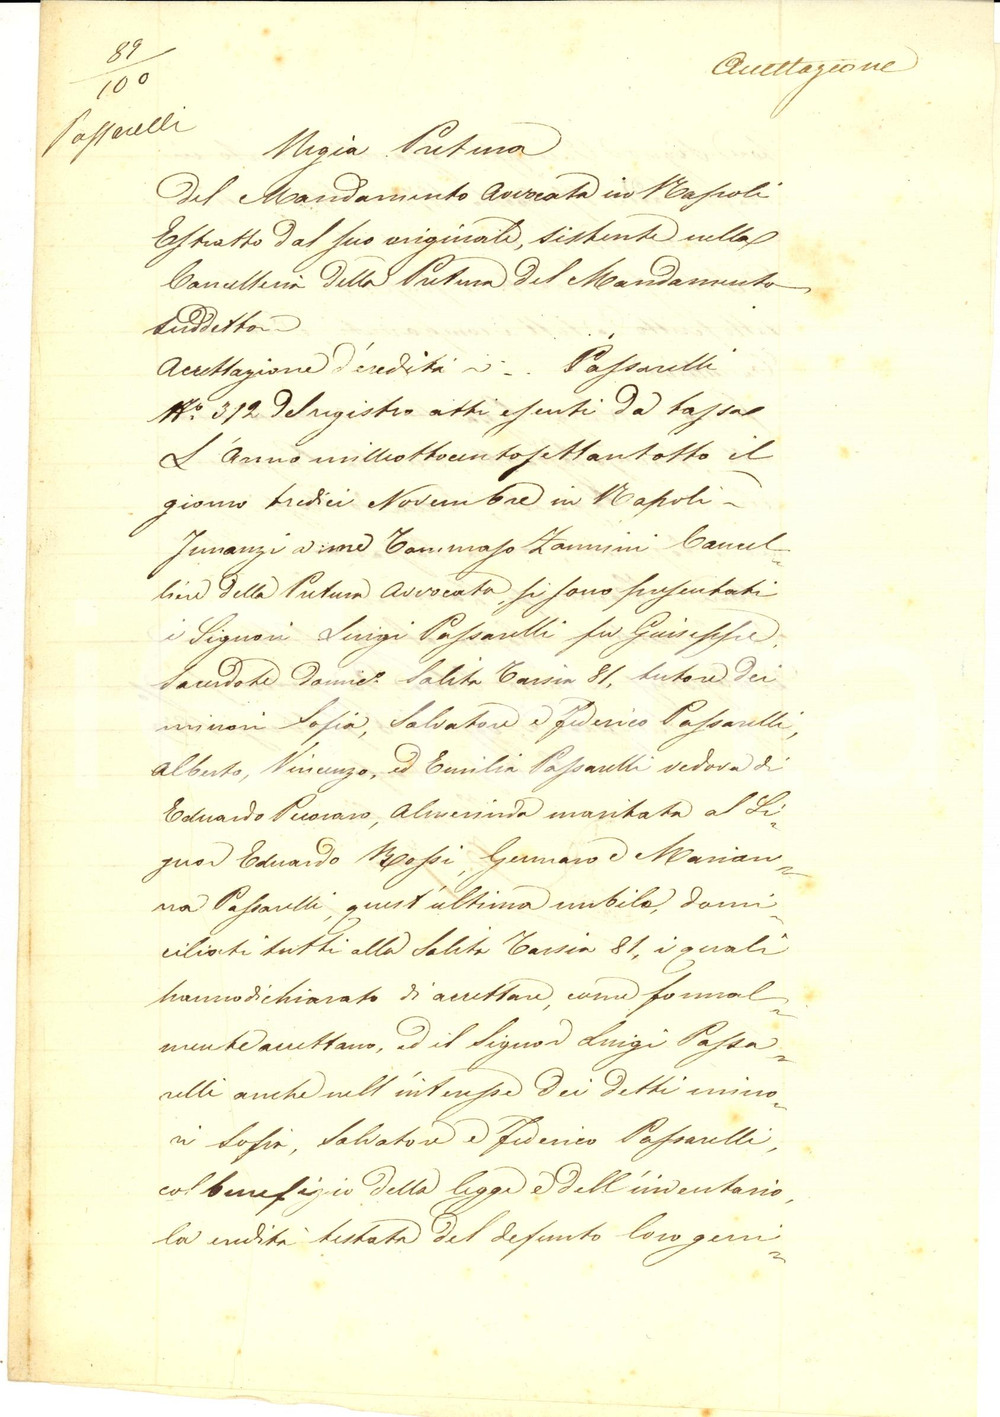 89
100
Passarelli
Accettazione
Regia Pretura
del Mandamento Avvocata in Napoli
Estratto dal suo originale, sistente nella
Cancelleria della Pretura del Mandamento
suddetto
Accettazione d'eredità Passarelli
N.º 312 del registro atti esenti da tassa
L'Anno milleottocentosettantotto il
giorno tredici Novembre in Napoli
Innanzi a me Tommaso Zannini Cancel-
liere della Pretura Avvocata, si sono presentati
i Signori Luigi Passarelli fu Giuseppe,
sacerdote domic.º Salita Tarsia 81, tutore dei
minori Sofia, Salvatore e Federico Passarelli,
Alberto, Vincenzo, ed Emilia Passarelli vedova di
Eduardo Pecoraro, Almerinda maritata al Si-
gnor Eduardo Rossi, Gennaro e Marian-
na Passarelli, quest'ultima nubile, domi-
ciliati tutti alla Salita Tarsia 81, i quali
hanno dichiarato di accettare, come formal-
mente accettano, ed il Signor Luigi Passa-
relli anche nell'interesse dei detti mino-
ri Sofia, Salvatore e Federico Passarelli,
col benefizio della legge e dell'inventario,
la eredità testata del defunto loro geni-